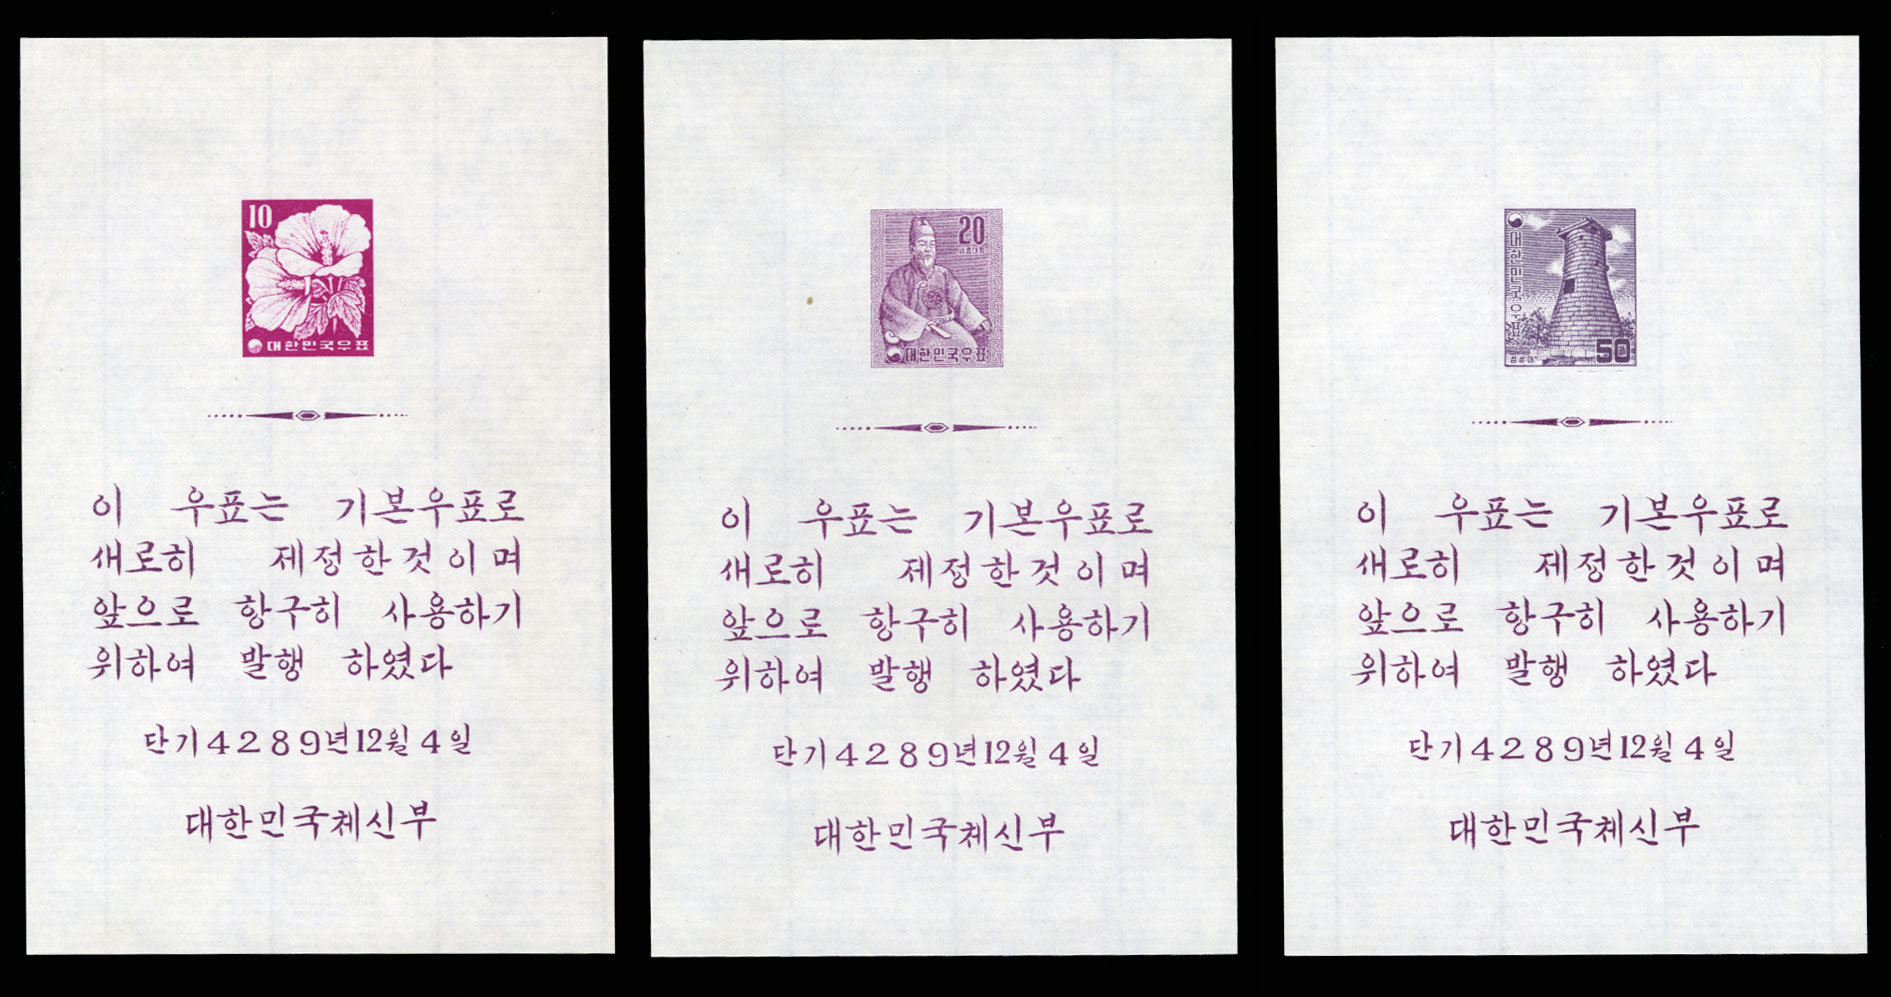 10
대한민국우표
이 우표는 기본우표로
새로히 제정한것이며
앞으로 항구히 사용하기
위하여 발행 하였다
단기4289년12월4일
대한민국체신부
20
세종대왕
대한민국우표
이 우표는 기본우표로
새로히 제정한것이며
앞으로 항구히 사용하기
위하여 발행 하였다
단기4289년12월4일
대한민국체신부
대한민국우표
50
첨성대
이 우표는 기본우표로
새로히 제정한것이며
앞으로 항구히 사용하기
위하여 발행 하였다
단기4289년12월4일
대한민국체신부